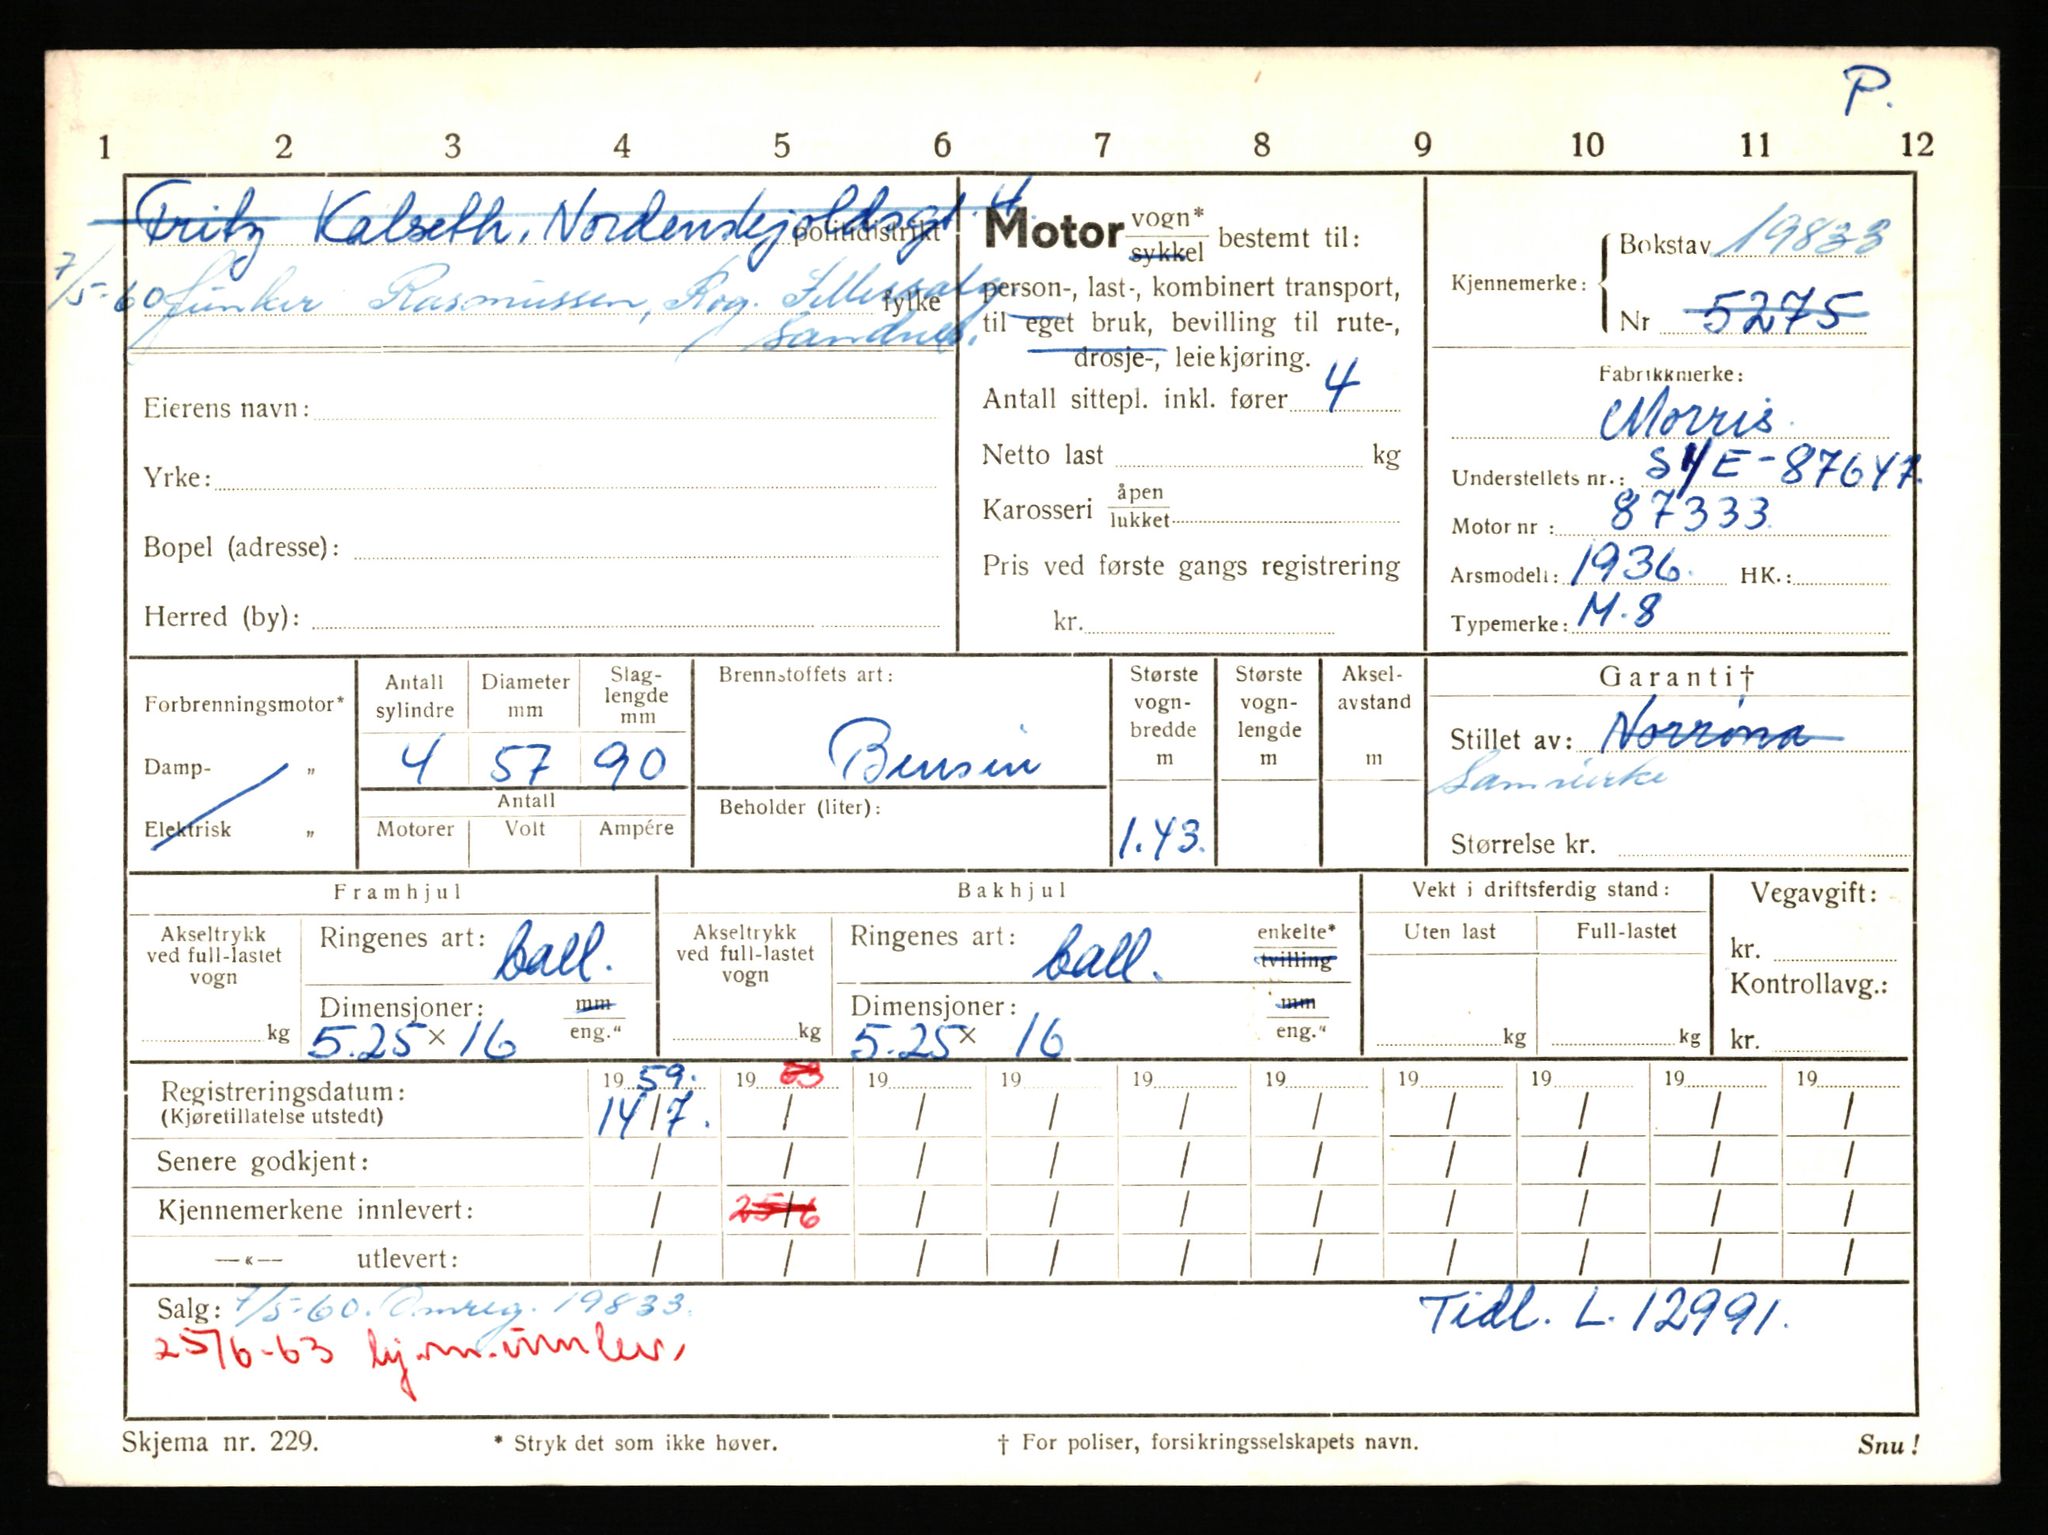 P.
1 2 3 4 5 6 7 8 9 10 11 12
Fritz Kalseth, Nordenskjoldsgt. 4.
politidistrikt
7/5-60 Junker Rasmussen, Rog.
fylke
Sandnes.
Eierens navn:
Yrke:
Bopel (adresse):
Herred (by):
Motor vogn* sykkel bestemt til:
person-, last-, kombinert transport,
til eget bruk, bevilling til rute-,
drosje-, leiekjøring.
Antall sittepl. inkl. fører 4
Netto last kg
Karosseri åpen lukket
Pris ved første gangs registrering
kr.
Kjennemerke: Bokstav 19833
Nr 5275
Fabrikkmerke:
Morris.
Understellets nr.: S4/E-87647.
Motor nr: 87333
Arsmodell: 1936. HK.:
Typemerke: M.8
Forbrenningsmotor*
Damp- „
Elektrisk „
Antall sylindre
Diameter mm
Slag-lengde mm
4 57 90
Antall
Motorer Volt Ampére
Brennstoffets art:
Bensin
Beholder (liter):
Største vogn-bredde m
1.43.
Største vogn-lengde m
Aksel-avstand m
Garanti†
Stillet av: Norrøna
Samvirke
Størrelse kr.
Framhjul
Akseltrykk ved full-lastet vogn
kg
Ringenes art: ball.
Dimensjoner: mm eng."
5.25 x 16
Bakhjul
Akseltrykk ved full-lastet vogn
kg
Ringenes art: ball. enkelte* tvilling
Dimensjoner: mm eng."
5.25 x 16
Vekt i driftsferdig stand:
Uten last Full-lastet
kg kg
Vegavgift:
kr.
Kontrollavg.:
kr.
Registreringsdatum: 19 59. 19 63 19 19 19 19 19 19 19 19
(Kjøretillatelse utstedt) 14/7. / / / / / / / / /
Senere godkjent: / / / / / / / / / /
Kjennemerkene innlevert: / 25/6 / / / / / / / /
—«— utlevert: / / / / / / / / / /
Salg: 7/5-60. Omreg. 19833.
Tidl. L. 12991.
25/6-63 kj.m. innlev.
Skjema nr. 229.
* Stryk det som ikke høver.
† For poliser, forsikringsselskapets navn.
Snu!